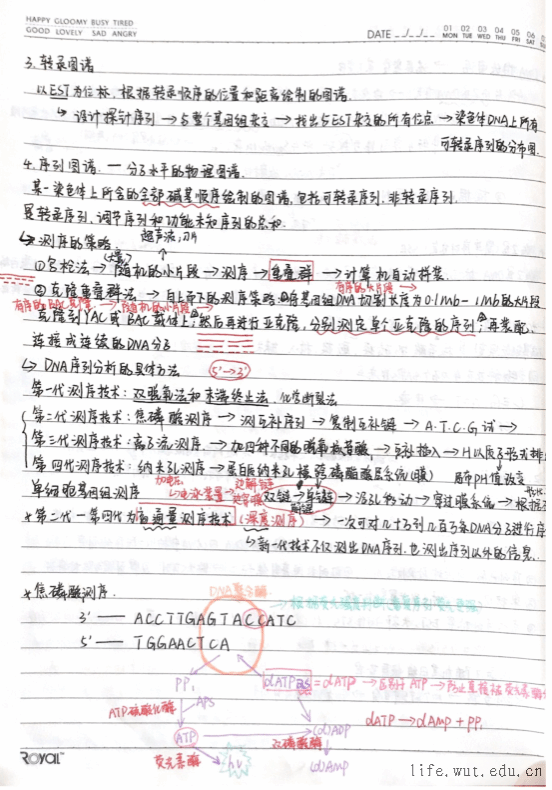 HAPPY GLOOMY BUSY TIRED
GOOD LOVELY SAD ANGRY
DATE _/_/_
01 02 03 04 05 06
MON TUE WED THU FRI SAT
3. 转录图谱
以EST为位标,根据转录顺序的位置和距离绘制的图谱.
↳ 设计探针序列 → 与整个基因组杂交 → 找出与EST杂交的所有位点 → 染色体DNA上所有
可转录序列的分布图.
4. 序列图谱. — 分子水平的物理图谱.
某一染色体上所含的全部碱基顺序绘制的图谱,包括可转录序列,非转录序列.
是转录序列,调节序列和功能未知序列的总和.
↳ 测序的策略
超声波;刀片
①鸟枪法 → 随机的小片段 → 测序 → 重叠群 → 计算机自动拼装
有序的大片段
②克隆重叠群法 → 自上而下的测序策略 基因组DNA切割长度为0.1Mb-1Mb的片段
有序的BAC克隆 → 随机的小片段
克隆到YAC或BAC载体上,然后再进行亚克隆,分别测定单个亚克隆的序列,再装配、
连接成连续的DNA分子
↳ DNA序列分析的具体方法 5'→3'
第一代测序技术:双脱氧法和末端终止法,化学断裂法
第二代测序技术:焦磷酸测序 → 测互补序列 → 复制互补链 → A.T.C.G试 →
第三代测序技术:离子流测序 → 加四种不同的脱氧核苷酸 → 互补插入 → H以质子形式释
第四代测序技术:纳米孔测序 → 蛋白纳米孔 磷脂酶层系统(膜) 局部PH值改变
加电压
单细胞基因组测序
双链→单链 → 沿孔移动 → 穿过膜系统 → 根据
解链
* 第二代-第四代为高通量测序技术(深度测序) → 一次可对几十万到几百万条DNA分子进行序
↳ 新一代技术不仅测出DNA序列,也测出序列以外的信息.
* 焦磷酸测序.
DNA聚合酶
3' — ACCTTGAGTACCATC
5' — TGGAACTCA
PPi
dATPαS = dATP → 区别于ATP → 防止直接被荧光素酶
ATP硫酸化酶
APS
ATP
(d)ADP
dATP → dAmp + PPi
荧光素酶
hv
双磷酸酶
(d)AMP
ROYAL™
life.wut.edu.cn